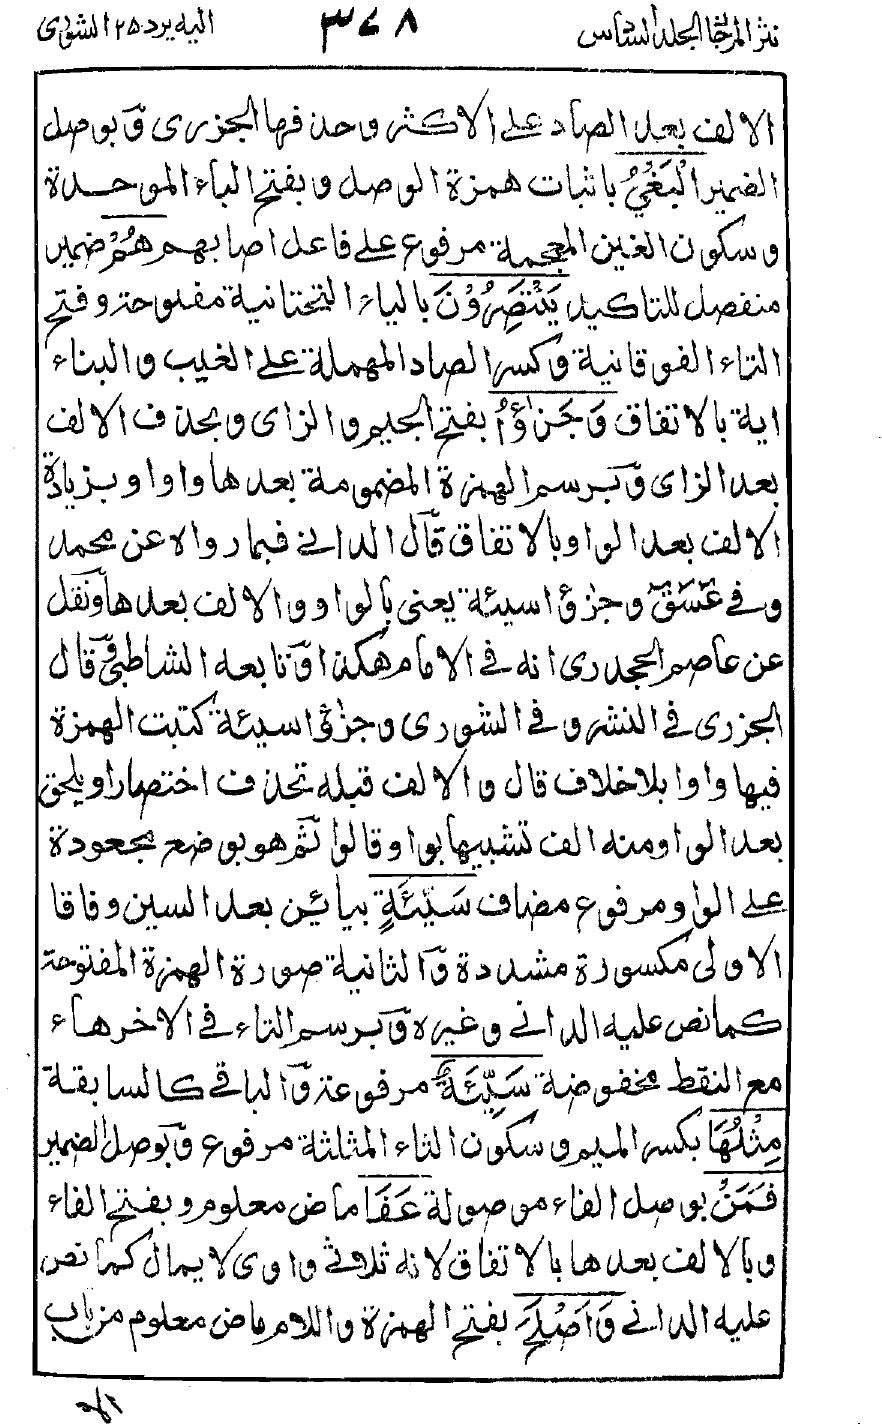 نثر المرجان المجلد السادس ٣٦٨ اليه يرد ٢٥ الشورى
الالف بعد الصاد على الاكثر وحذفها الجزرى وَبوصل
الضمير الْبَغْيُ باثبات همزة الوصل وبفتح الباء الموحدة
وسكون الغين المعجمة مرفوع على فاعل اصابهم هُمْ ضمير
منفصل للتاكيد يَنْتَصِرُوْنَ بالياء التحتانية مفتوحة وفتح
التاء الفوقانية وكسر الصاد المهملة على الغيب والبناء
اية بالاتفاق وَجَزٰؤُا بفتح الجيم والزاى وبحذف الالف
بعد الزاى وَبرسم الهمزة المضمومة بعدها واوا وبزيادة
الالف بعد الواو بالاتفاق قال الدانى فيما رواه عن محمد
وفى عٓسٓقٓ وجزٰؤا سيئة يعنى بالواو والالف بعدها ونقل
عن عاصم الجحدرى انه فى الامام هكذا وَتابعه الشاطبى وَقال
الجزرى فى النشر وفى الشورى وجزٰؤا سيئة كتبت الهمزة
فيها واوا بلاخلاف قال والالف قبله تحذف اختصارا ويلحق
بعد الواو منه الف تشبيها بواو قالوا ثم هو بوضع مجعودة
على الواو مرفوع مضاف سَيِّئَةٍ بيائين بعد السين وفاقا
الاولى مكسورة مشددة وَالثانية صورة الهمزة المفتوحة
كما نص عليه الدانى وغيره وَبرسم التاء فى الاخر هاء
مع النقط مخفوضة سَيِّئَةٌ مرفوعة وَالباقى كالسابقة
مِثْلُهَا بكسر الميم وسكون الثاء المثلثة مرفوع وَبوصل الضمير
فَمَنْ بوصل الفاء موصولة عَفَا ماض معلوم وبفتح الفاء
وبالالف بعدها بالاتفاق لانه ثلاثى واوى لا يمال كما نص
عليه الدانى وَاَصْلَحَ بفتح الهمزة واللام ماض معلوم من باب